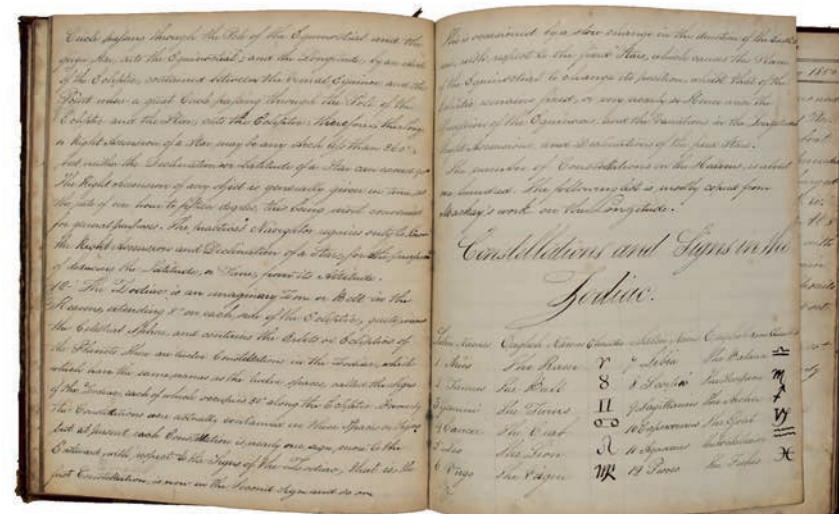 Circle passing through the Pole of the Equinoctial and the
given Star, cuts the Equinoctial; and the Longitude, by an arch
of the Ecliptic, contained between the Vernal Equinox and the
Point where a great Circle passing through the Pole of the
Ecliptic and the Star, cuts the Ecliptic: therefore the Long
or Right Ascension of a Star may be any Arch less than 360°
but neither the Declination nor Latitude of a Star can exceed 90°
The Right Ascension of any object is generally given in time, at
the rate of one hour to fifteen degrees, this being most convenient
for general purposes. The practical Navigator requires only to know
the Right Ascension and Declination of a Star, for the purpose
of deducing the Latitude, or Time, from its Altitude.
10. The Zodiac is an imaginary Zone or Belt in the
Heavens, extending 8° on each side of the Ecliptic, quite round
the Celestial Sphere, and contains the Orbits or Ecliptics of
the Planets. There are twelve Constellations in the Zodiac, which
which have the same names as the twelve spaces, called the Signs
of the Zodiac, each of which occupies 30° along the Ecliptic. Formerly
the Constellations were actually contained in these Spaces or Signs
but at present each Constellation is nearly one sign, more to the
Eastward, with respect to the Signs of the Zodiac, that is, the
first Constellation, is now in the Second Sign and so on
This is occasioned by a slow change in the direction of the Earth's
axis, with respect to the fixed Stars, which causes the Plane
of the Equinoctial to change its position, whilst that of the
Ecliptic remains fixed, or very nearly so. Hence arise the
Precession of the Equinoxes, and the Variations in the Longitudes
Right Ascensions, and Declinations of the fixed Stars.
The number of Constellations in the Heavens, is about
one hundred. The following list is mostly copied from
Mackay's work on the Longitude.
Constellations and Signs in the
Zodiac.
Latin Names English Names Character Latin Names English Names
1 Aries The Ram ♈ 7 Libra The Balance ♎
2 Taurus The Bull ♉ 8 Scorpio The Scorpion ♏
3 Gemini The Twins ♊ 9 Sagittarius The Archer ♐
4 Cancer The Crab ♋ 10 Capricornus The Goat ♑
5 Leo The Lion ♌ 11 Aquarius ♒
6 Virgo The Virgin ♍ 12 Pisces The Fishes ♓